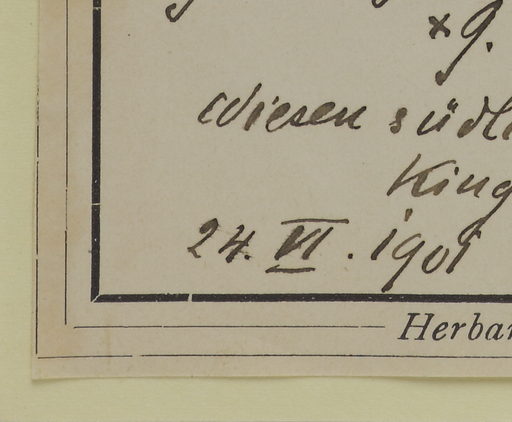 × 9.
Wiesen südl
King
24. VI. 1901
Herbar